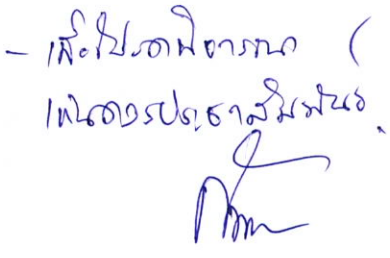 - เพื่อโปรดพิจารณา (
เห็นควรประชาสัมพันธ์